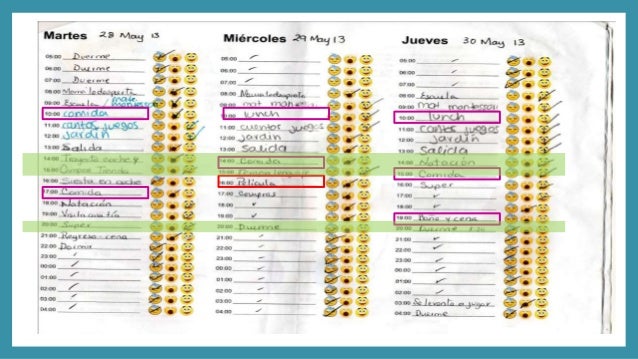 Martes 28 May 13
05:00 Duerme
06:00 Duerme
07:00 Duerme
08:00
09:00 Escuela / mate montessori
10:00 comida
11:00 cantos juegos
12:00 jardín
13:00 Salida
14:00 Trayecto coche y
15:00 Compra Tienda
16:00 Siesta en coche
17:00 Comida
18:00 Natación
19:00 Visita a mi tía
20:00 Super
21:00 Regreso - cena
22:00 Dormir
23:00
00:00
01:00
02:00
03:00
04:00
Miércoles 29 May 13
05:00
06:00
07:00
08:00
09:00 mat montes
10:00 lunch
11:00 cuentos juegos
12:00 jardín
13:00 salida
14:00 Comida
15:00
16:00 Película
17:00 Compras
18:00
19:00
20:00 Duerme
21:00
22:00
23:00
00:00
01:00
02:00
03:00
04:00
Jueves 30 May 13
05:00
06:00
07:00
08:00 Escuela
09:00 mat montessori
10:00 lunch
11:00 cantos juegos
12:00 jardín
13:00 Salida
14:00 Natación
15:00 Comida
16:00 Super
17:00
18:00
19:00 Baño y cena
20:00 Duerme
21:00
22:00
23:00
00:00
01:00
02:00
03:00 Se levanta a jugar
04:00 Duerme